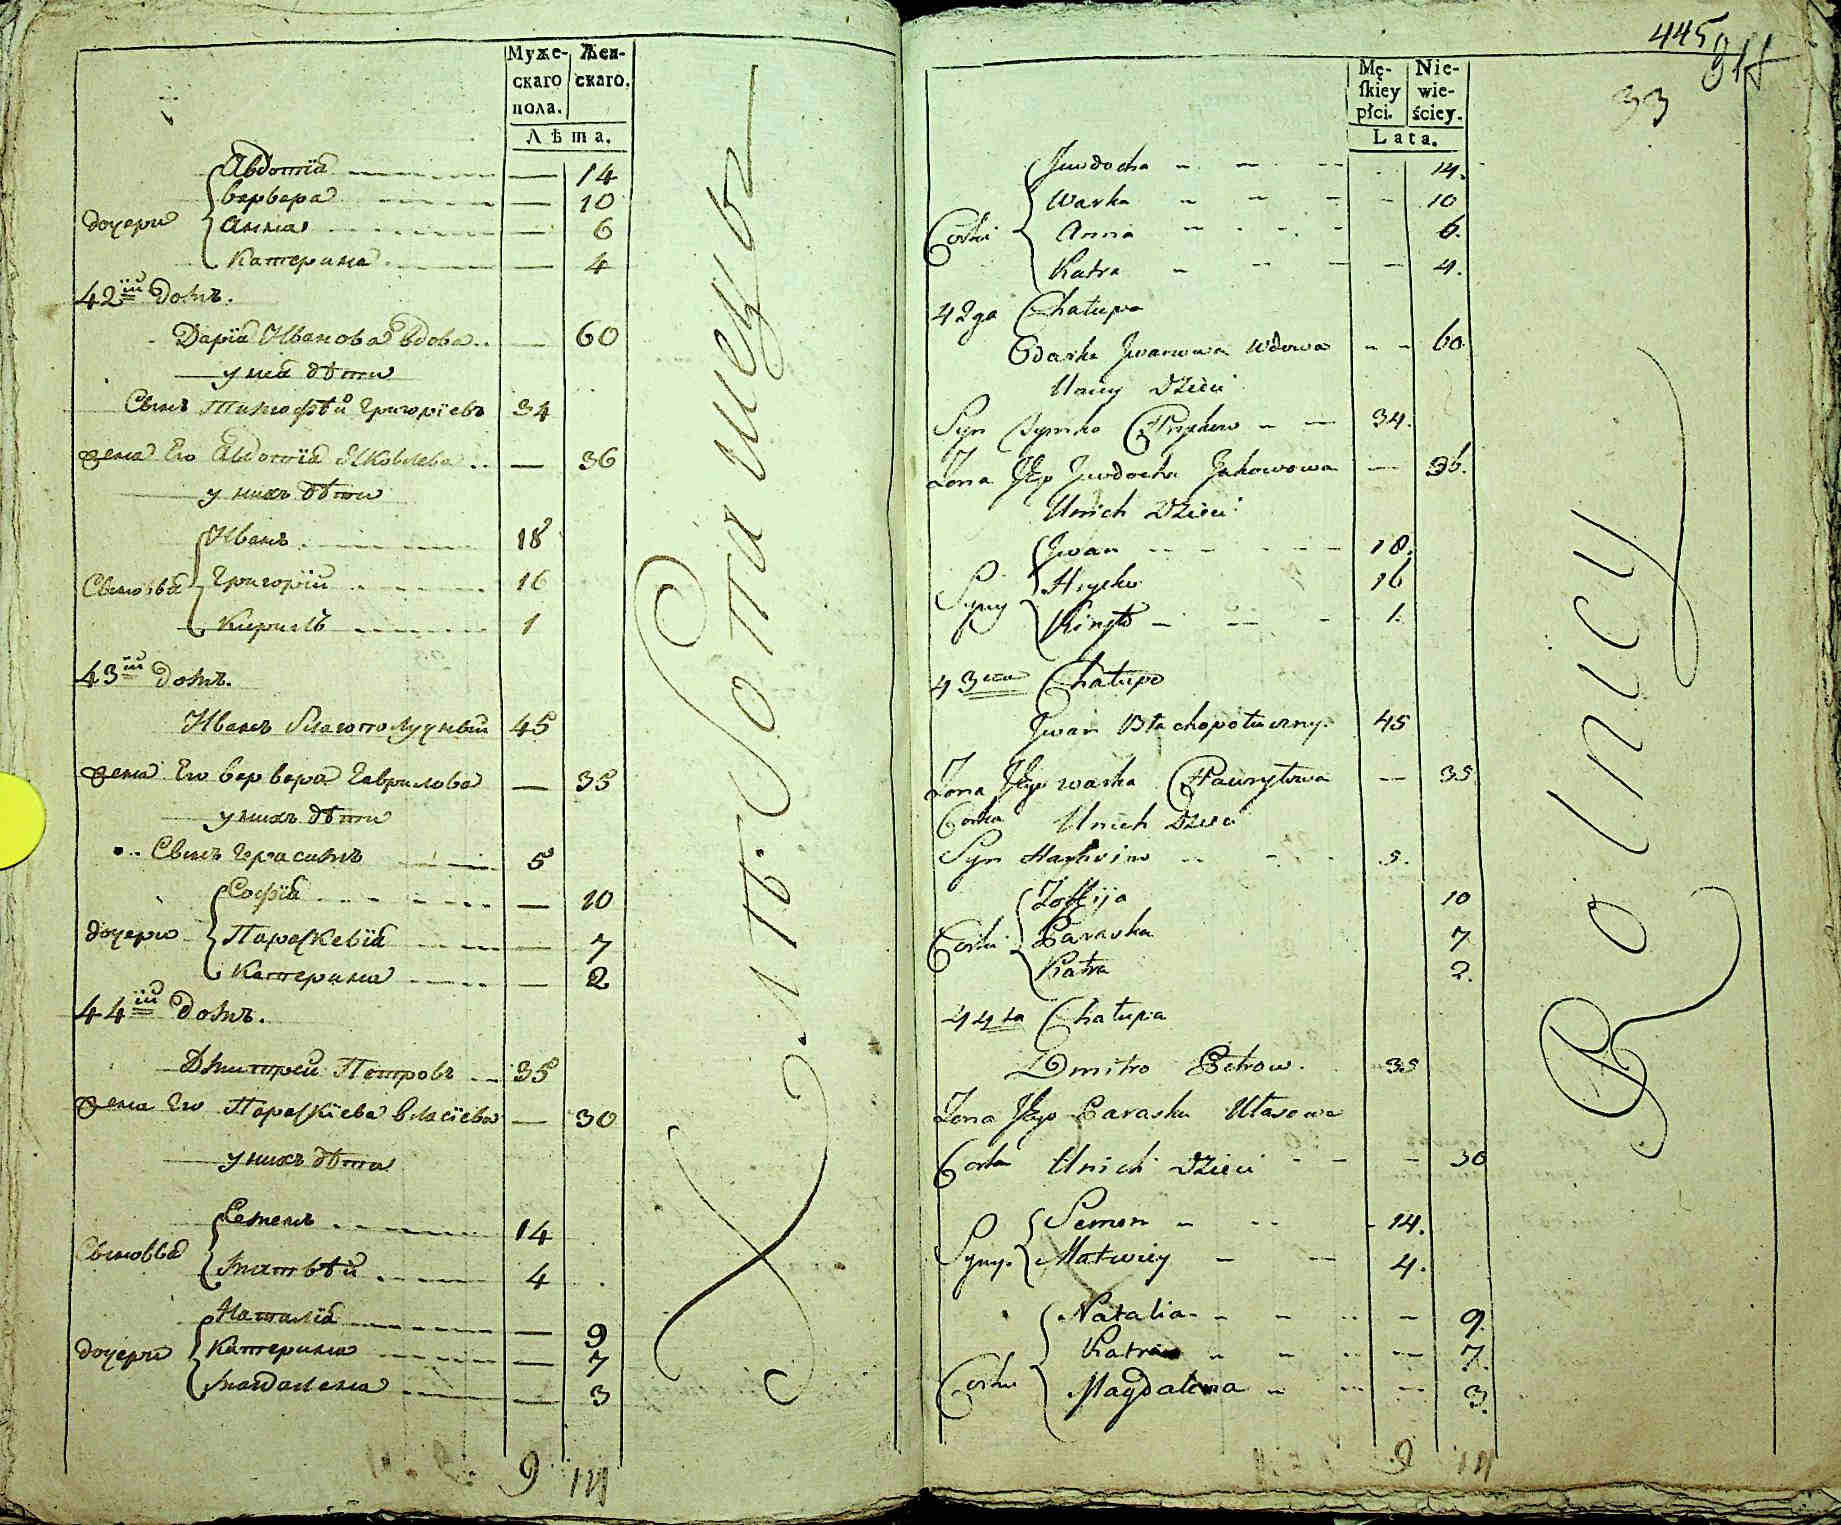 Муже-
скаго
пола.
Жен-
скаго.
Лѣта.
дочери
Авдотїа — 14
варвара — 10
Анна — 6
Катерина — 4
42ій домъ.
Дарїа Иванова вдова — 60
у неа дѣти
Сынъ Тимофѣй Григорїевъ 34
жена Его Авдотїа Яковлева — 36
у нихъ дѣти
Сыновьа
Иванъ 18
Григорїй 16
Кирилъ 1
43ій домъ.
Иванъ Благополучный 45
жена Его варвара Гаврилова — 35
у нихъ дѣти
Сынъ Герасимъ 5
дочери
Софїа — 10
Параскевїа — 7
Катерина — 2
44ій домъ.
Дмитрей Петровъ 35
жена Его Параскїева власїева — 30
у нихъ дѣти
Сыновьа
Семенъ 14
матвѣй 4
дочери
Наталїа — 9
Катерина — 7
магдалена — 3
445
33
Mę-
ſkiey
płci.
Nie-
wie-
ściey.
Lata.
Corki
Juwdocha — 14.
Warka — 10
Anna 6.
Katra — 4.
42ga Chałupa
Odarka Jwanowa Wdowa — 60.
Uniey Dzieci
Syn Tymko Hryhorow — 34.
Zona Jego Juwdocha Jakowowa — 36.
Unich Dzieci
Syny
Jwan — 18.
Hryćko 16
Kiryło — 1.
43cia Chałupa
Jwan Błachopołuczny. 45
Zona Jego warka Hawryłowa — 35
Corka Unich Dzieci
Syn Harasim 5.
Corki
Zoffija 10
Paraska 7
Katra 2.
44ta Chałupa
Dmitro Petrow. 35
Zona Jego Paraska Ułasowa
Corka Unich Dzieci — 30
Syny.
Semen 14.
Matwiey — 4.
Corki
Natalia — 9.
Katra — 7.
Magdalena — 3.
Rolnicy